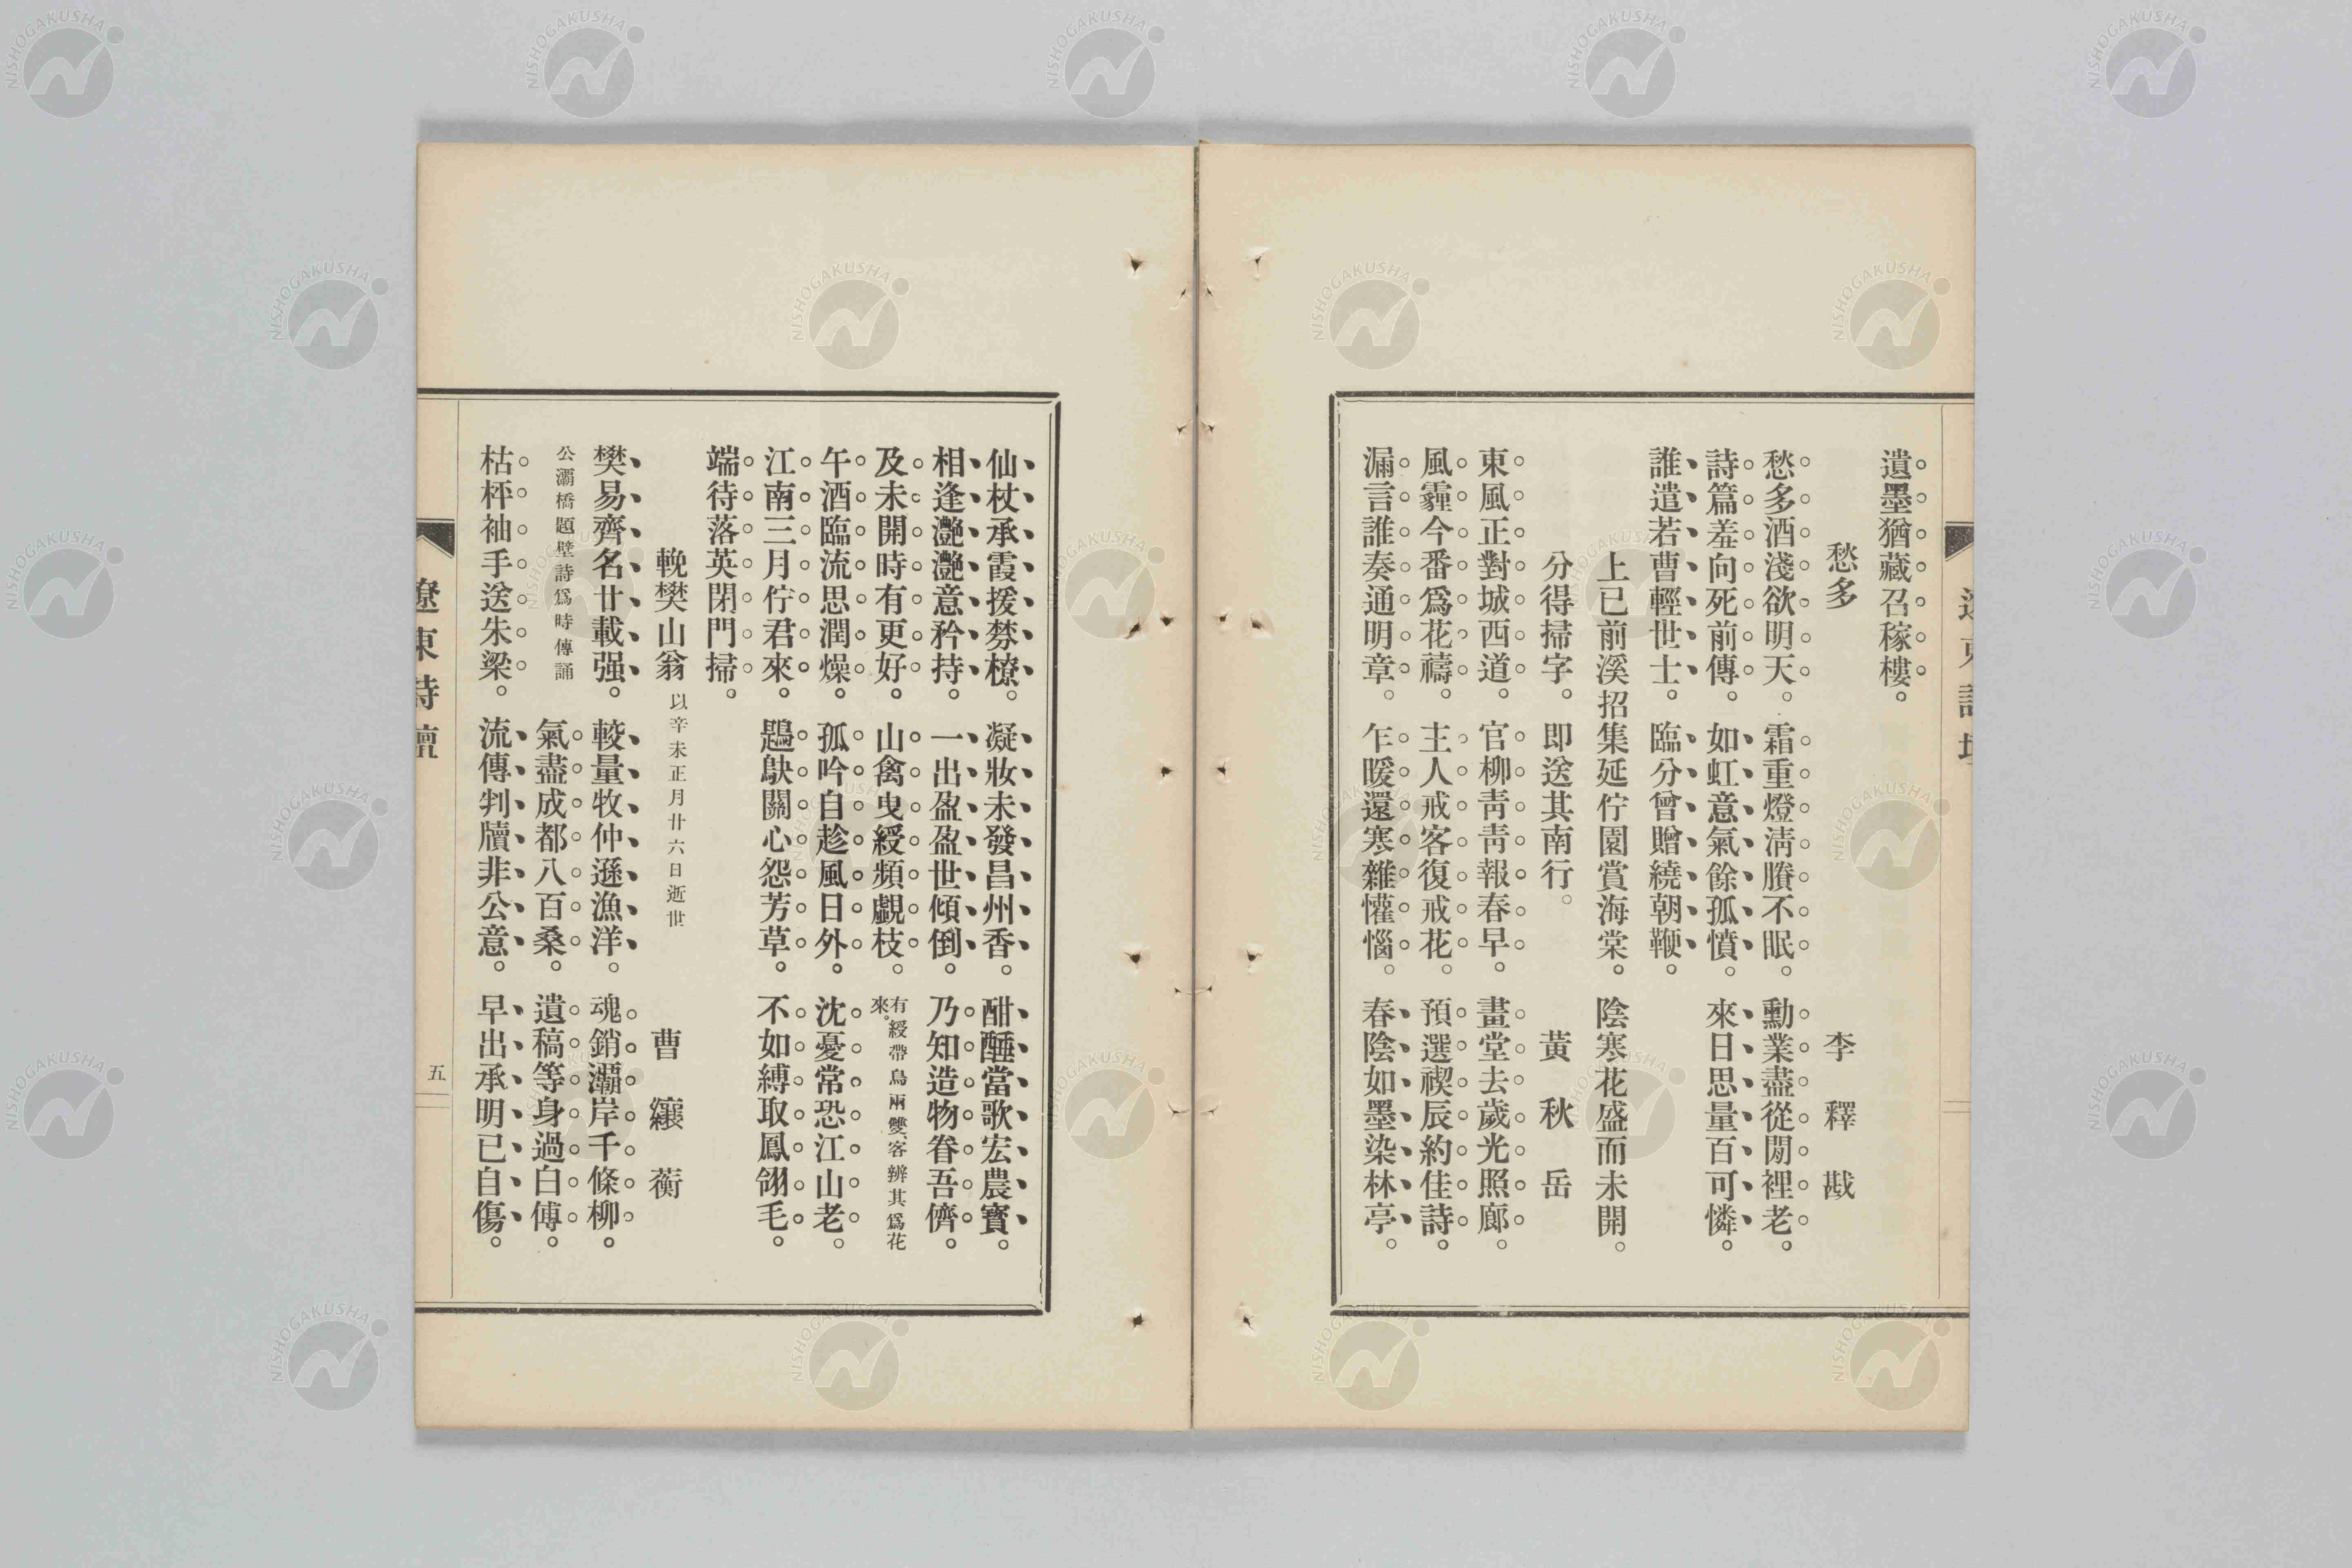 遺墨猶藏召稼樓。
愁多 李釋戡
愁多酒淺欲明天。霜重燈淸賸不眠。勳業盡從閒裡老。
詩篇羞向死前傳。如虹意氣餘孤憤。來日思量百可憐。
誰遣若曹輕世士。臨分曾贈繞朝鞭。
上已前溪招集延佇園賞海棠。陰寒花盛而未開。
分得掃字。即送其南行。 黃秋岳
東風正對城西道。官柳靑靑報春早。畫堂去歲光照廊。
風霾今番爲花禱。主人戒客復戒花。預選禊辰約佳詩。
漏言誰奏通明章。乍暖還寒雜懽惱。春陰如墨染林亭。
遼東詩壇
仙杖承霞援棼橑。凝妝未發昌州香。酣酲當歌宏農寳。
相逢灧灧意矜持。一出盈盈世傾倒。乃知造物眷吾儕。
及未開時有更好。山禽曳綬頻覷枝。有綬帶鳥兩雙客辨其爲花來。
午酒臨流思潤燥。孤吟自趁風日外。沈憂常恐江山老。
江南三月佇君來。鶗鴃關心怨芳草。不如縛取鳳翎毛。
端待落英閉門掃。
輓樊山翁 以辛未正月廿六日逝世 曹纕蘅
樊易齊名廿載强。較量牧仲遜漁洋。魂銷灞岸千條柳。
公灞橋題壁詩爲時傳誦 氣盡成都八百桑。遺稿等身過白傅。
枯枰袖手送朱梁。流傳判牘非公意。早出承明已自傷。
遼東詩壇
五
NISHOGAKUSHA